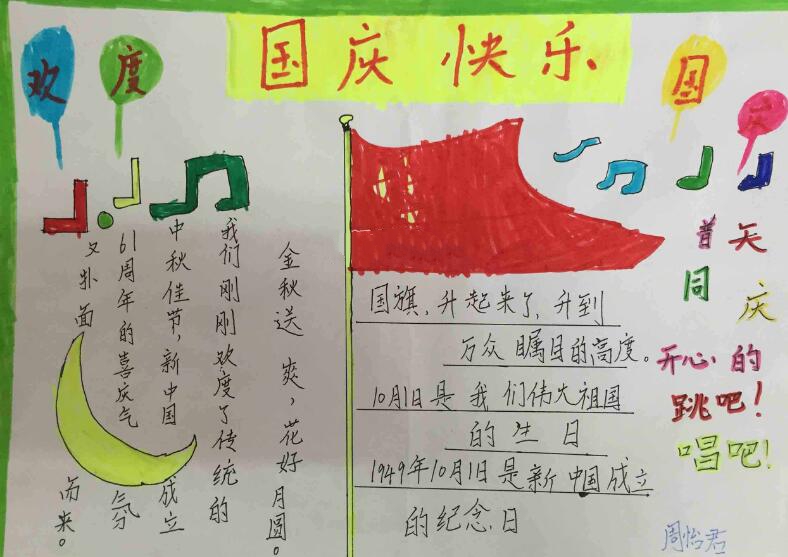 国庆快乐
欢度国庆
金秋送爽，花好月圆。
我们刚刚欢度了传统的
中秋佳节，新中国成立
61周年的喜庆气氛
又扑面而来。
国旗，升起来了，升到
万众瞩目的高度。
10月1日是我们伟大祖国
的生日
1949年10月1日是新中国成立
的纪念日
普天
同庆
开心的
跳吧！
唱吧！
周怡君